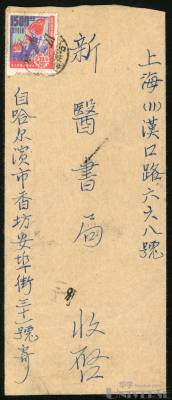 上海(11)漢口路六六八號
新醫書局 收啓
自哈尔濱市香坊安埠街三十一號寄